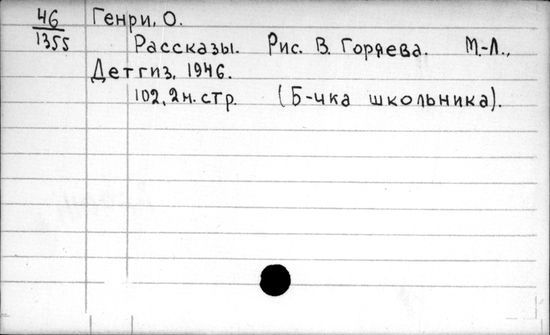 46
1355
Генри, О.
Рассказы. Рис. В. Горяева. М.-Л.,
Детгиз, 1946.
102, 2н. стр. (Б-чка школьника).